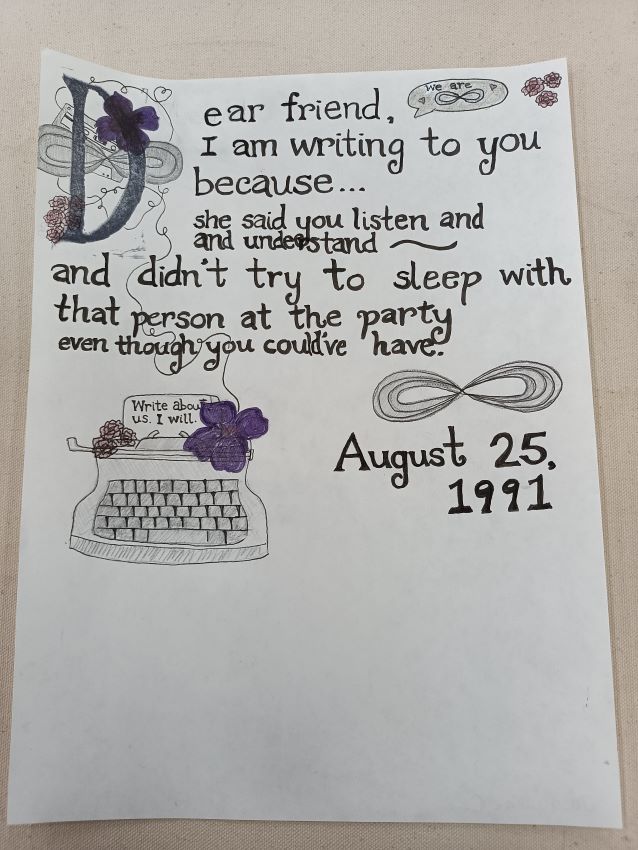 Dear friend,
We are
I am writing to you
because...
she said you listen and
and understand
and didn't try to sleep with
that person at the party
even though you could've have.
Write about
us. I will.
August 25,
1991